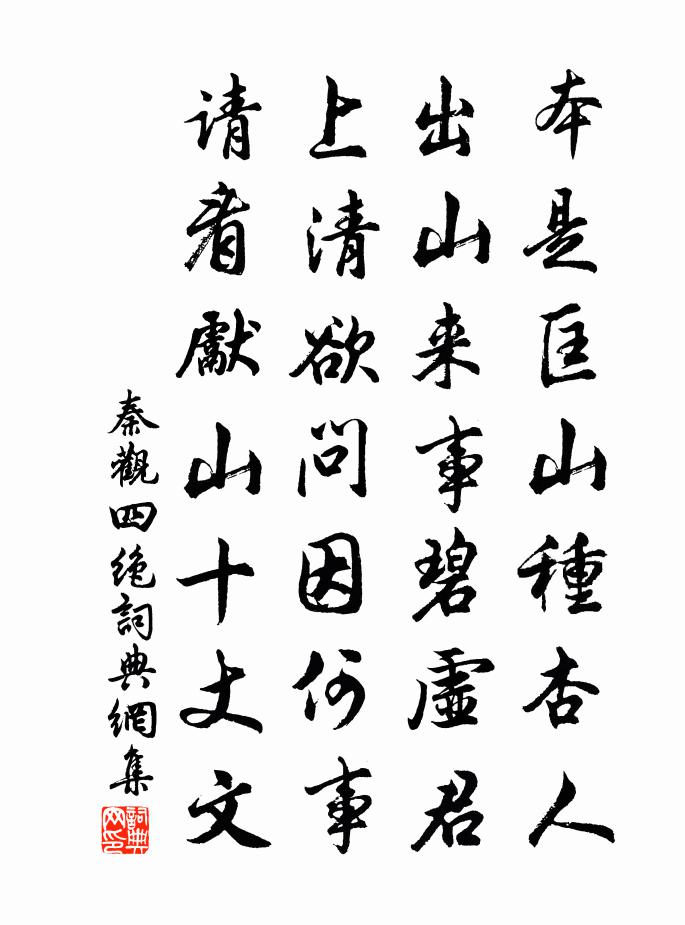 本是匡山種杏人
出山来事碧虛君
上清欲問因何事
请看獻山十丈文
秦觀四绝詞典網集
詞典网印